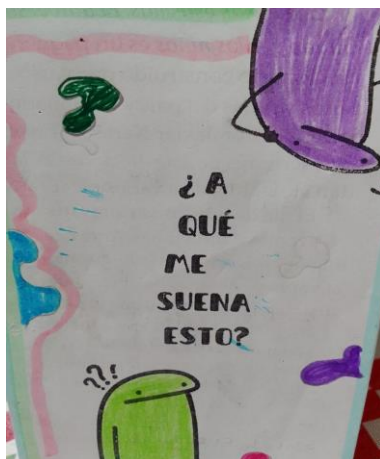 ¿A
QUÉ
ME
SUENA
ESTO?
???!